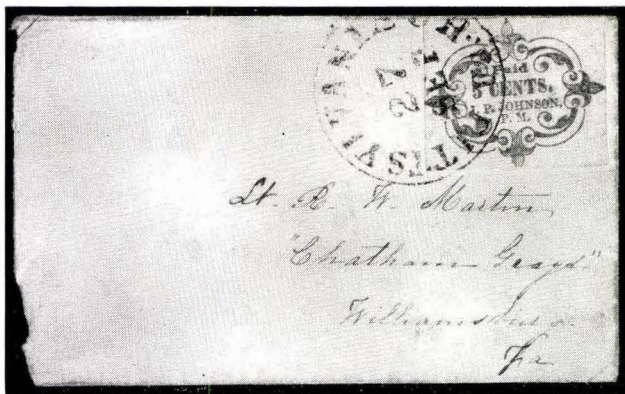 PITTSYLVANIA C.H.
27
Paid
5 CENTS.
J. P. JOHNSON,
P. M.
Lt. R. W. Martin,
"Chatham Grays"
Williamsburg
Va